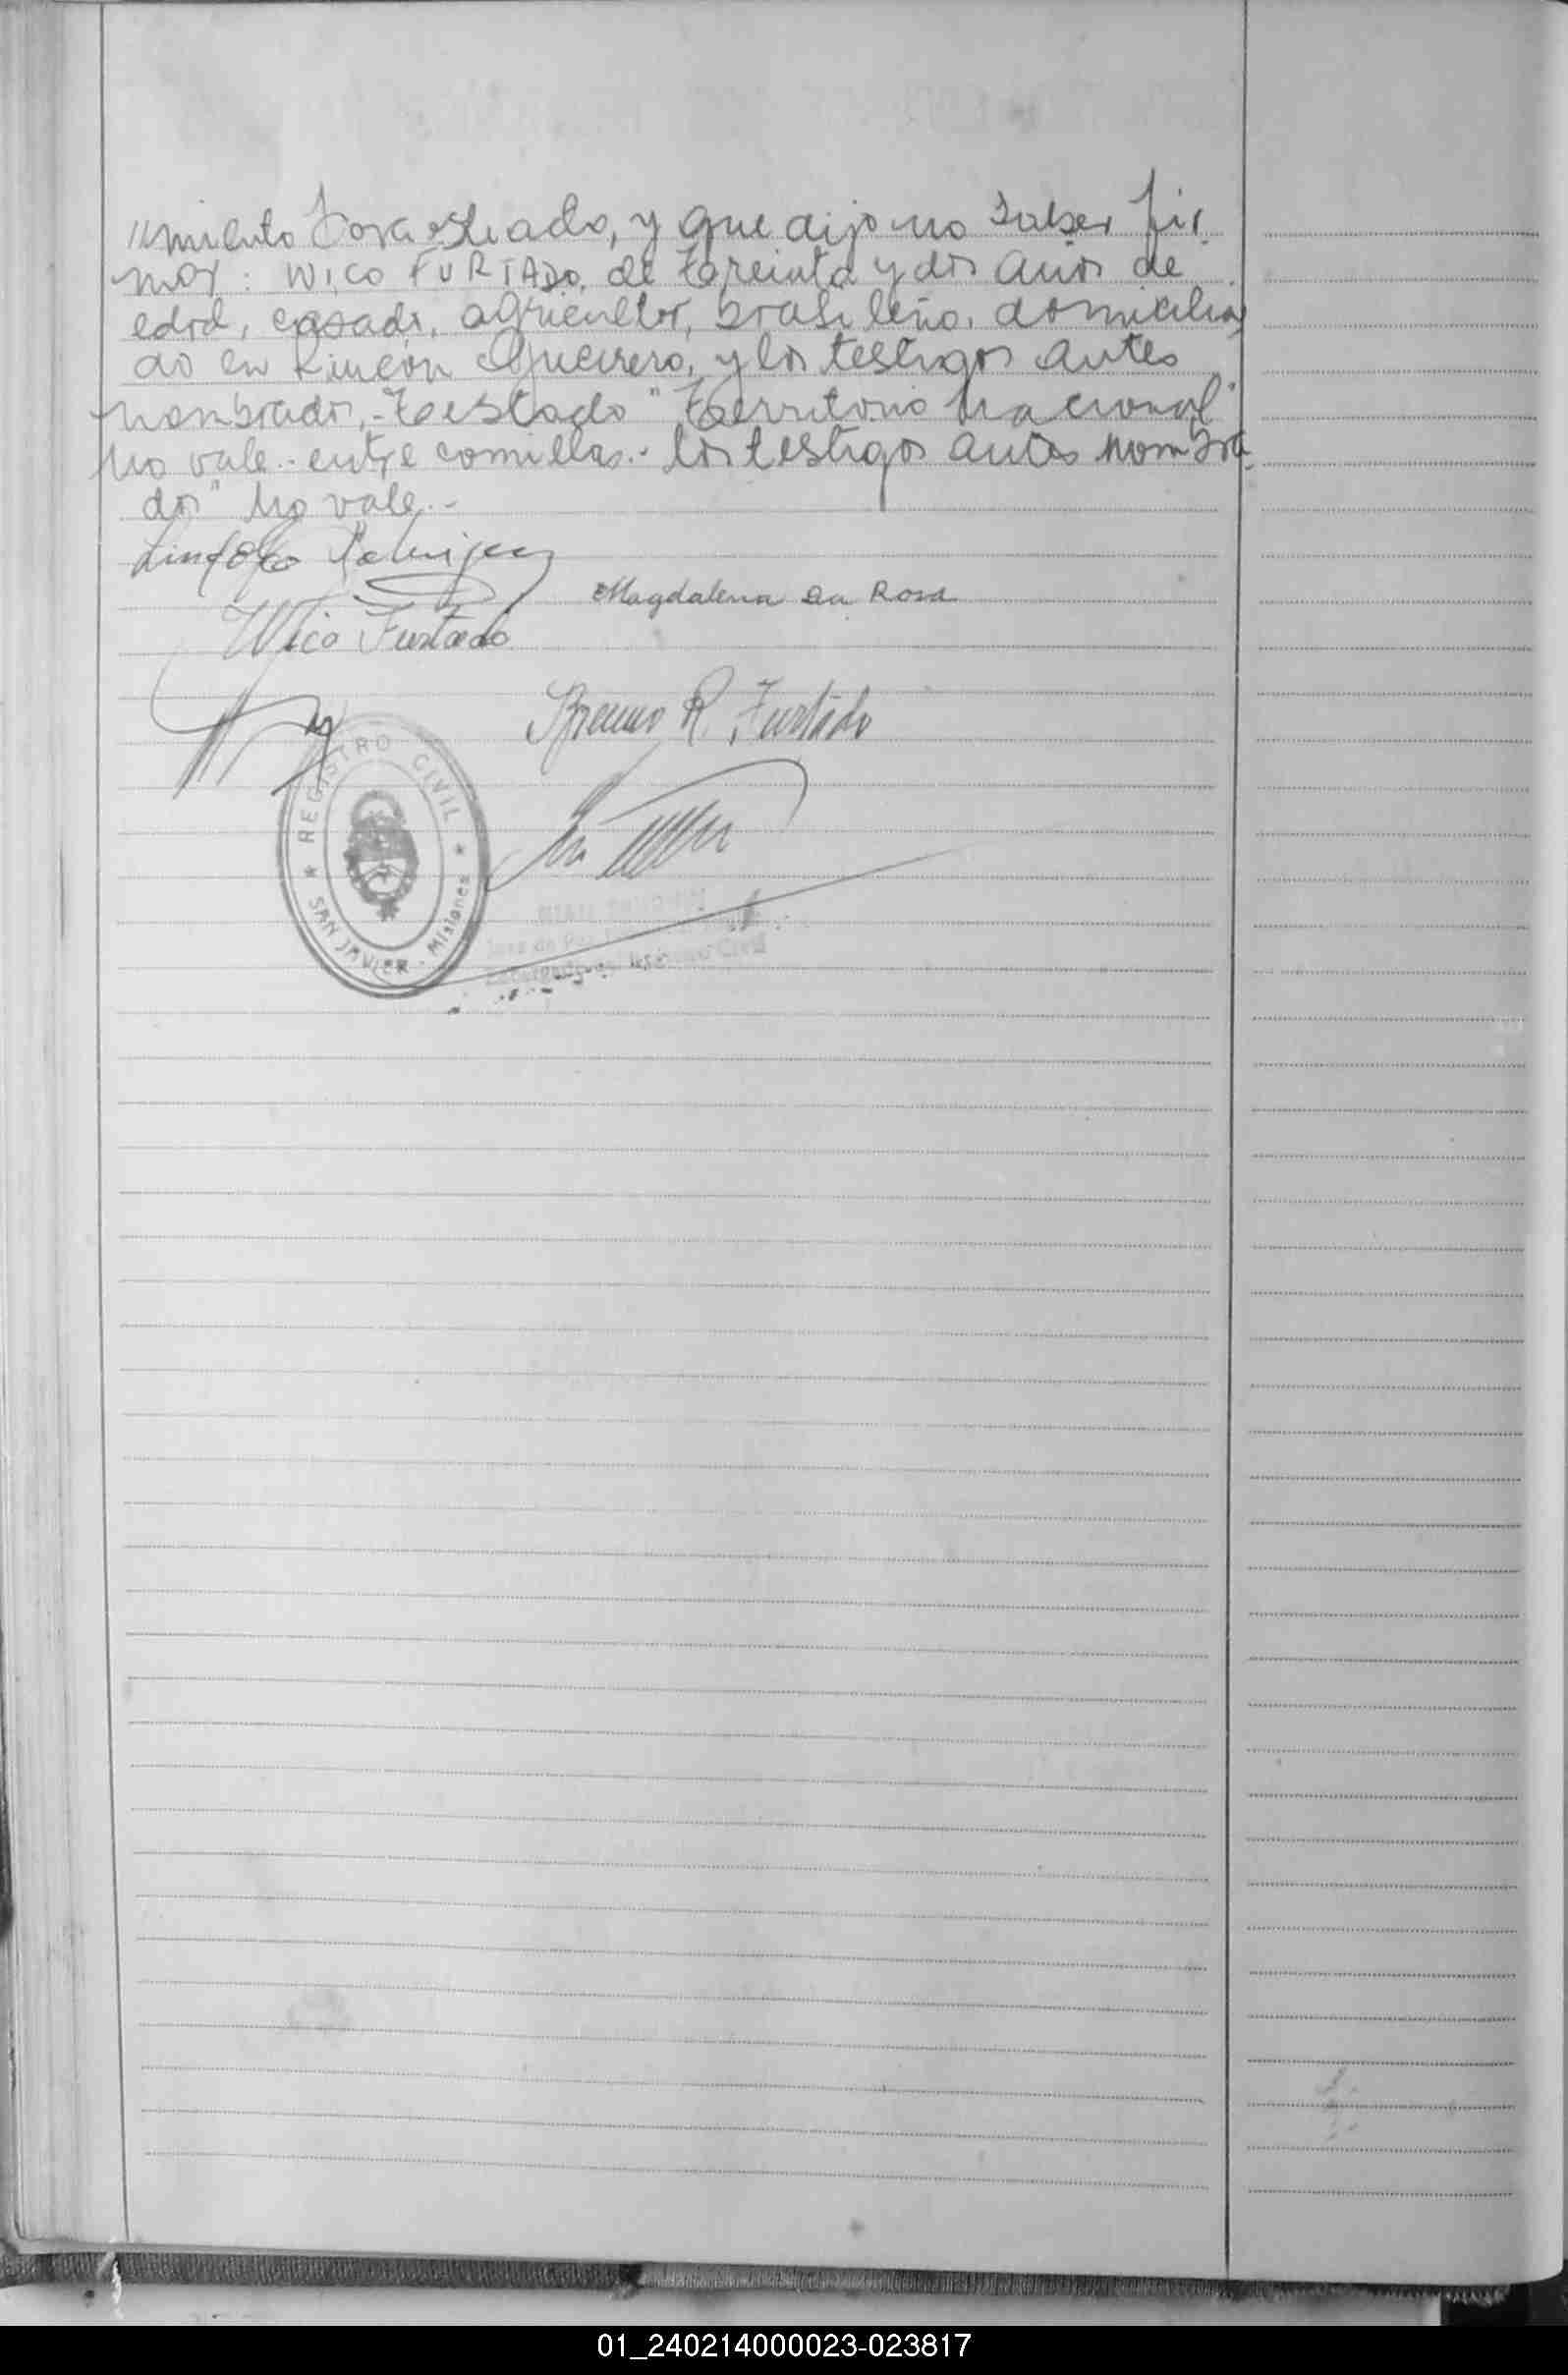 "miento
y que dijo no saber fir
mar: WICO FURTADO, de treinta y dos años de
edad, casado, agricultor, brasileño, domicilia
do en Rincón Guerrero, y los testigos antes
nombrados.- Testado "Territorio Nacional"
No vale.- entre comillas.- los testigos antes nombra
dos" No vale.-
Lindolfo Rodriguez
Magdalena Da Rosa
Wico Furtado
Brenno R. Furtado
REGISTRO CIVIL
SAN JAVIER - Misiones
Juez de Paz
Encargado del Registro Civil
01_240214000023-023817